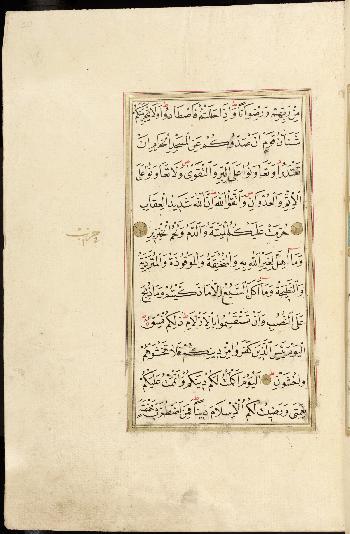 من ربهم ورضوانا واذا حللتم فاصطادوا ولا يجرمنكم
شنان قوم ان صدوكم عن المسجد الحرام ان
تعتدوا وتعاونوا على البر والتقوى ولا تعاونوا على
الاثم والعدوان واتقوا الله ان الله شديد العقاب
حرمت عليكم الميتة والدم ولحم الخنزير
وما اهل لغير الله به والمنخنقة والموقوذة والمتردية
والنطيحة وما اكل السبع الا ما ذكيتم وما ذبح
على النصب وان تستقسموا بالازلام ذلكم فسق
اليوم يئس الذين كفروا من دينكم فلا تخشوهم
واخشون اليوم اكملت لكم دينكم واتممت عليكم
نعمتي ورضيت لكم الاسلام دينا فمن اضطر في مخمصة